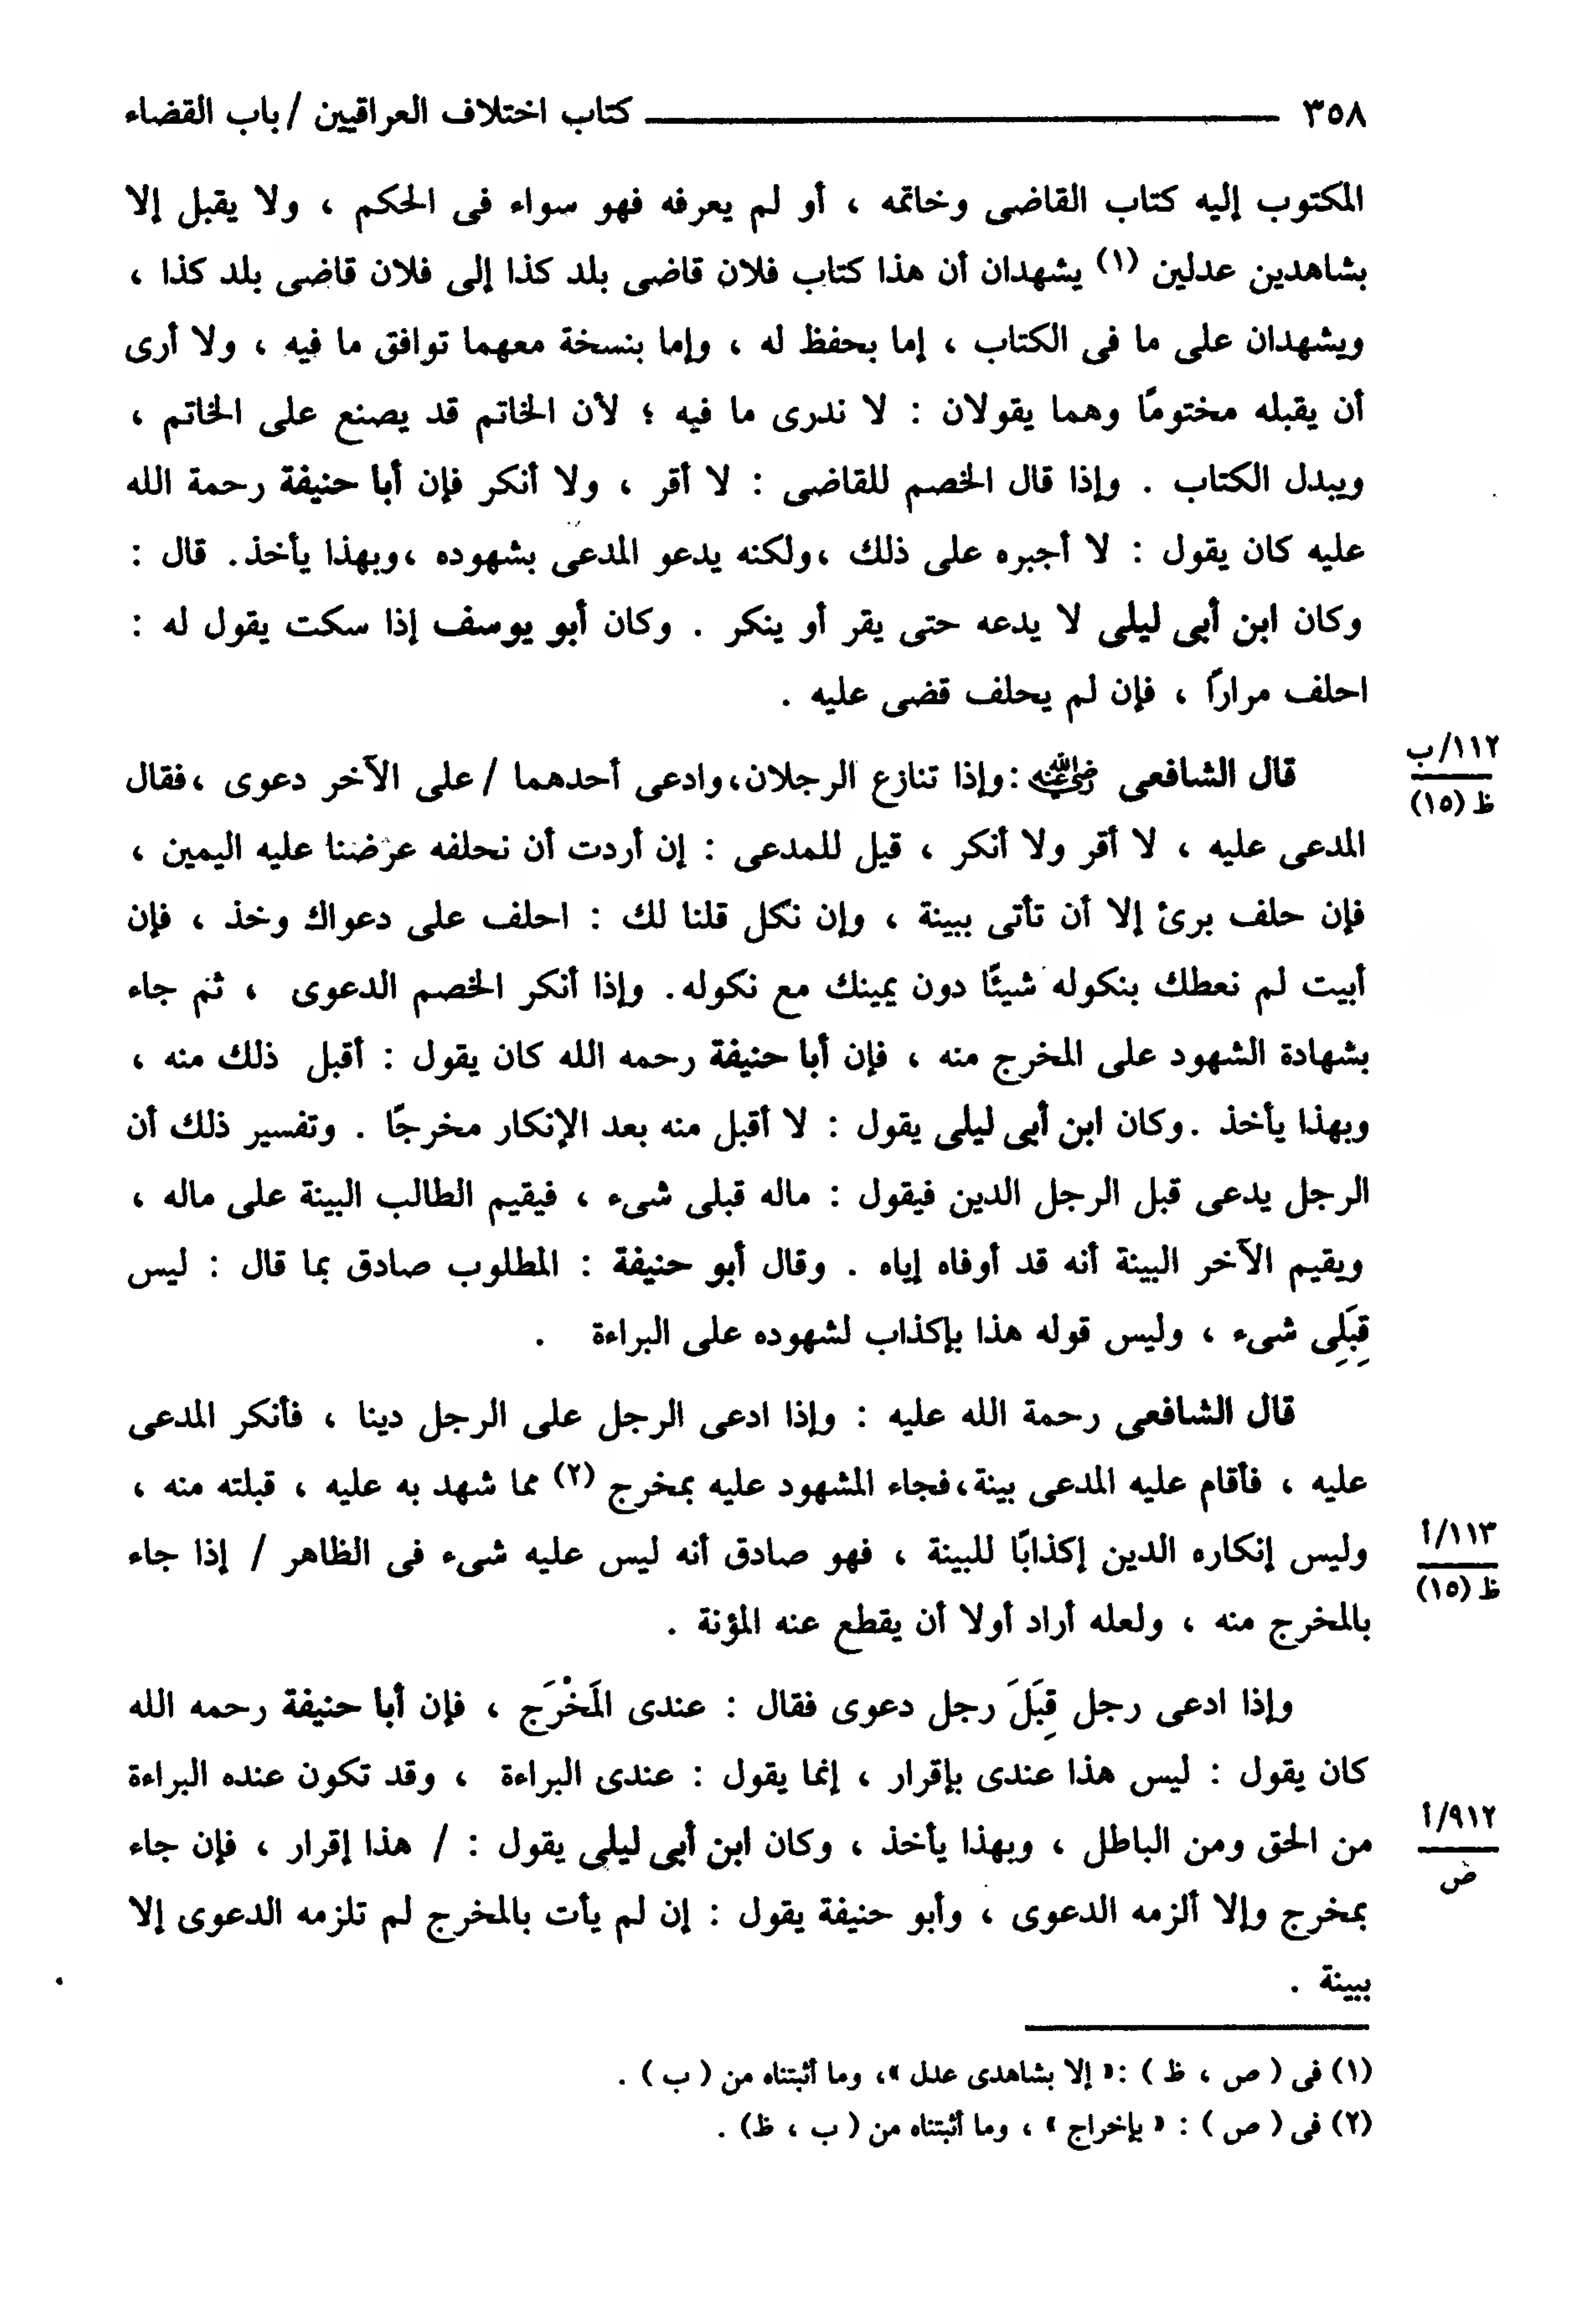 ٣٥٨ كتاب اختلاف العراقيين / باب القضاء
المكتوب إليه كتاب القاضى وخاتمه ، أو لم يعرفه فهو سواء فى الحكم ، ولا يقبل إلا
بشاهدين عدلين (١) يشهدان أن هذا كتاب فلان قاضى بلد كذا إلى فلان قاضى بلد كذا ،
ويشهدان على ما فى الكتاب ، إما بحفظ له ، وإما بنسخة معهما توافق ما فيه ، ولا أرى
أن يقبله مختومًا وهما يقولان : لا ندرى ما فيه ؛ لأن الخاتم قد يصنع على الخاتم ،
ويبدل الكتاب . وإذا قال الخصم للقاضى : لا أقر ، ولا أنكر فإن أبا حنيفة رحمة الله
عليه كان يقول : لا أجبره على ذلك ،ولكنه يدعو المدعى بشهوده ،وبهذا يأخذ. قال :
وكان ابن أبى ليلى لا يدعه حتى يقر أو ينكر . وكان أبو يوسف إذا سكت يقول له :
احلف مرارًا ، فإن لم يحلف قضى عليه .
قال الشافعى رضي الله عنه :وإذا تنازع الرجلان،وادعى أحدهما / على الآخر دعوى ،فقال
١١٢/ب
ظ (١٥)
المدعى عليه ، لا أقر ولا أنكر ، قيل للمدعى : إن أردت أن نحلفه عرضنا عليه اليمين ،
فإن حلف برئ إلا أن تأتى ببينة ، وإن نكل قلنا لك : احلف على دعواك وخذ ، فإن
أبيت لم نعطك بنكوله شيئًا دون يمينك مع نكوله. وإذا أنكر الخصم الدعوى ، ثم جاء
بشهادة الشهود على المخرج منه ، فإن أبا حنيفة رحمه الله كان يقول : أقبل ذلك منه ،
وبهذا يأخذ .وكان ابن أبى ليلى يقول : لا أقبل منه بعد الإنكار مخرجًا . وتفسير ذلك أن
الرجل يدعى قبل الرجل الدين فيقول : ماله قبلى شىء ، فيقيم الطالب البينة على ماله ،
ويقيم الآخر البينة أنه قد أوفاه إياه . وقال أبو حنيفة : المطلوب صادق بما قال : ليس
قِبَلِى شىء ، وليس قوله هذا بإكذاب لشهوده على البراءة .
قال الشافعى رحمة الله عليه : وإذا ادعى الرجل على الرجل دينا ، فأنكر المدعى
عليه ، فأقام عليه المدعى بينة،فجاء المشهود عليه بمخرج (٢) مما شهد به عليه ، قبلته منه ،
وليس إنكاره الدين إكذابًا للبينة ، فهو صادق أنه ليس عليه شىء فى الظاهر / إذا جاء
١١٣/أ
ظ (١٥)
بالمخرج منه ، ولعله أراد أولا أن يقطع عنه المؤنة .
وإذا ادعى رجل قِبَلَ رجل دعوى فقال : عندى المَخْرَج ، فإن أبا حنيفة رحمه الله
كان يقول : ليس هذا عندى بإقرار ، إنما يقول : عندى البراءة ، وقد تكون عنده البراءة
من الحق ومن الباطل ، وبهذا يأخذ ، وكان ابن أبى ليلى يقول : / هذا إقرار ، فإن جاء
٩١٢/أ
ص
بمخرج وإلا ألزمه الدعوى ، وأبو حنيفة يقول : إن لم يأت بالمخرج لم تلزمه الدعوى إلا
ببينة .
(١) فى ( ص ، ظ ) :« إلا بشاهدى عدل »، وما أثبتناه من ( ب ) .
(٢) فى ( ص ) : « بإخراج » ، وما أثبتناه من ( ب ، ظ) .